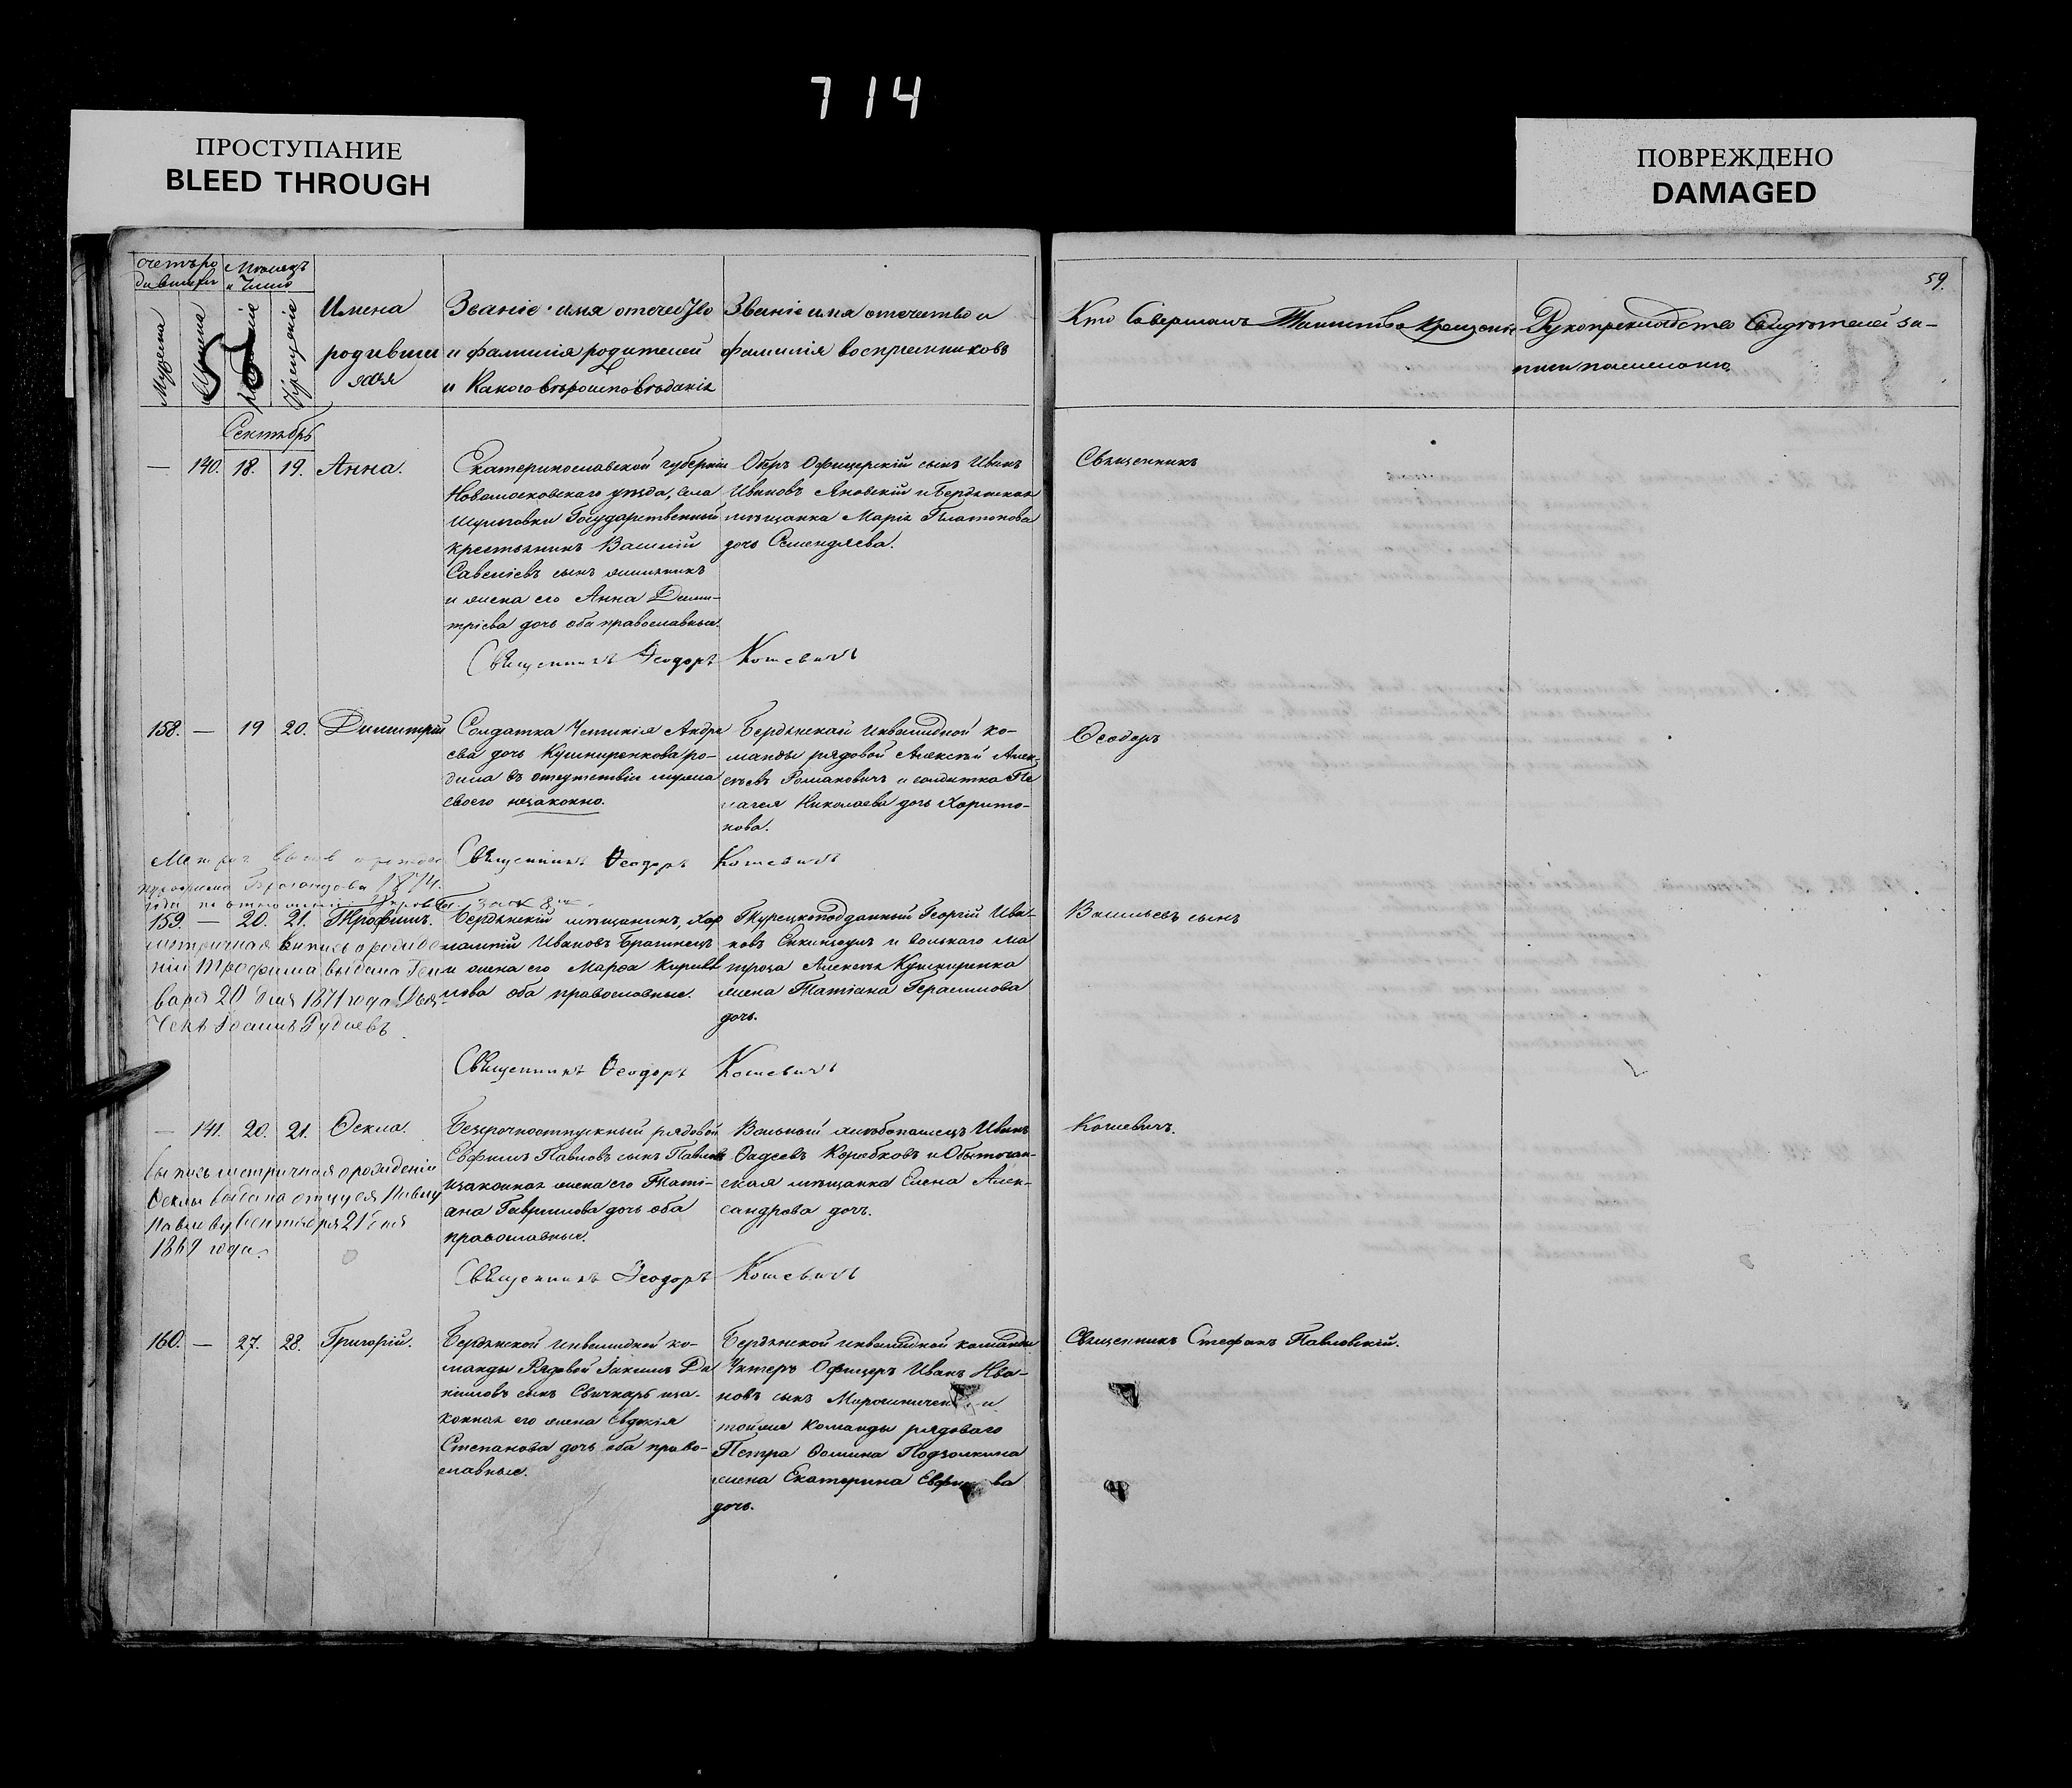 714
ПРОСТУПАНИЕ
BLEED THROUGH
ПОВРЕЖДЕНО
DAMAGED
59.
Счетъ ро
дившихся
Мѣсяцъ
и Число
Мужеска
Женска
Рожденіе
Крещеніе
Имена
родивши
хся
Званіе имя отечество
и фамилія родителей
и Какого вѣроисповѣданія
Званіе имя отечество и
фамилія воспріемниковъ
Кто Совершалъ Таинство крещенія
Рукоприкладство Свидѣтелей за-
писи по желанію
Сентябрь
— 140. 18. 19. Анна.
Екатеринославской губерніи
Новомосковскаго уѣзда, села
Государственный
крестьянинъ Василій
Савеліевъ сынъ
и жена его Анна Дими-
тріева дочь оба православные.
Оберъ Офицерскій сынъ Иванъ
Ивановъ Яновскій и Бердянская
мѣщанка Марія Платонова
дочь Семендяева.
Священникъ
Священникъ Ѳеодоръ Кошевичъ
158. — 19 20. Димитрій
Солдатка Андре
ева дочь Кушниренкова ро-
дила въ отсутствіи мужа
своего незаконно.
Бердянской инвалидной ко-
манды рядовой Алексѣй Алек-
сѣевъ Романовичъ и солдатка Пе
лагея Николаева дочь Харито-
нова.
Ѳеодоръ
Священникъ Ѳеодоръ Кошевичъ
1874.
159. — 20. 21. Трофимъ.
Бердянскій мѣщанинъ, Хар
лампій Ивановъ Брагинецъ
и жена его Марѳа Кирил
лова оба православные.
Турецкоподданный Георгій Ива-
новъ и вольнаго ма
троза Алексѣя Кушниренка
жена Татіана Герасимова
дочь.
Васильевъ сынъ
метричная выпись о рожде
ніи Трофима выдана Ген
варя 20 дня 1871 года Дья-
чекъ Іоаннъ
Священникъ Ѳеодоръ Кошевичъ
— 141. 20. 21. Ѳекла.
Безсрочноотпускный рядовой
Евфимъ Павловъ сынъ Павловъ
изаконная жена его Тати-
ана Гаврилова дочь оба
православные.
Вольный хлѣбопашецъ Иванъ
Ѳадеевъ Коробковъ и Обыточен-
ская мѣщанка Елена Алек-
сандрова дочь.
Кошевичъ.
Выпись метричная о рожденіи
Ѳеклы выдана отцу ея
Павлову Сентября 21 дня
1869 года.
Священникъ Ѳеодоръ Кошевичъ
160. — 27. 28. Григорій.
Бердянской инвалидной ко-
манды Рядовой Іакимъ Да
ниловъ сынъ Свинарь иза-
конная его жена Евдокія
Степанова дочь оба право-
славные.
Бердянской инвалидной команды
Унтеръ Офицеръ Иванъ Ива-
новъ сынъ и
тойже команды рядоваго
Петра Ѳомина Подзолкина
жена Екатерина
дочь.
Священникъ Стефанъ Павловскій.